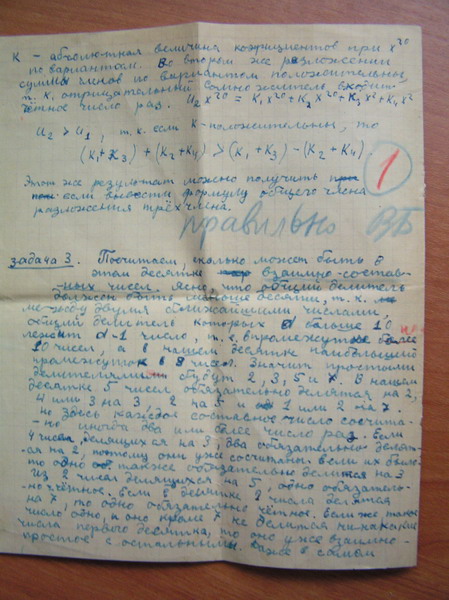 K – абсолютная величина коэфициентов при x²⁰
по вариантам. Во втором же разложении
суммы членов по вариантам положительны,
т.к. отрицательный сомножитель входит
чётное число раз. a₂x²⁰ = K₁x²⁰+K₂x²⁰+K₃x²⁰+K₄x²⁰
a₂ > a₁, т.к. если K-положительны, то
(K₁+K₃) + (K₂+K₄) > (K₁+K₃) - (K₂+K₄)
Этот же результат можно получить
если вывести формулу общего члена
разложения трёхчлена.
1
правильно ВБ
Задача 3. Посчитаем, сколько может быть в
этом десятке взаимно-состав-
ных чисел. Ясно, что общий делитель
должен быть меньше десяти, т.к.
между двумя ближайшими числами,
общий делитель которых d больше 10
лежит d-1 число, т.е. в промежутке более
10 чисел, а в нашем десятке наибольший
промежуток в 8 чисел. Значит простыми
делителями будут 2, 3, 5 и 7. В нашем
десятке 5 чисел обязательно делятся на 2,
4 или 3 на 3, 2 на 5 и 1 или 2 на 7.
Но здесь каждое составное число сосчита-
но иногда два или более число раз. Если
4 числа делящихся на 3, два обязательно делят-
ся на 2, потому они уже сосчитаны если их было
то одно также обязательно делится на 3
Из 2 чисел делящихся на 5, одно обязатель-
но чётное. Если в десятке 2 числа делятся
на 7, то одно обязательно чётное. Если же такое
число одно, и оно кроме 7 не делится ни на какие
числа первого десятка, то оно уже взаимно-
простое с остальными. Даже в самом